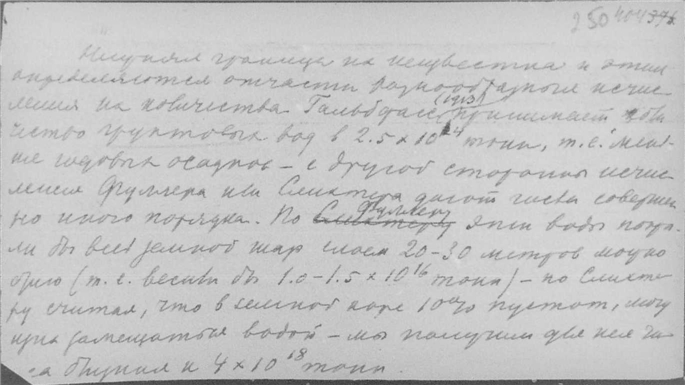 250 404
Нижняя граница их неизвестна и этим
определяются отчасти разнообразные исчис
ления их количества Гальбфасс (1913) принимает
чество грунтовых вод в 2.5 x 10 тонн, т.е. мень
ше годовых осадков – с другой стороны исчис
ления Фуллера или Слихтера дают числа совершен
но иного порядка. По Слихтеру Фуллеру эти воды покры
ли бы весь земной шар слоем 20–30 метров мощно
стью (т.е. весили бы 1.0–1.5 x 10¹⁶ тонн) – по Слихте
ру считая, что в земной коре 10% пустот, могу
щих замещаться водой – мы получим для нея чи
с а близкия к 4 x 10¹⁸ тонн.